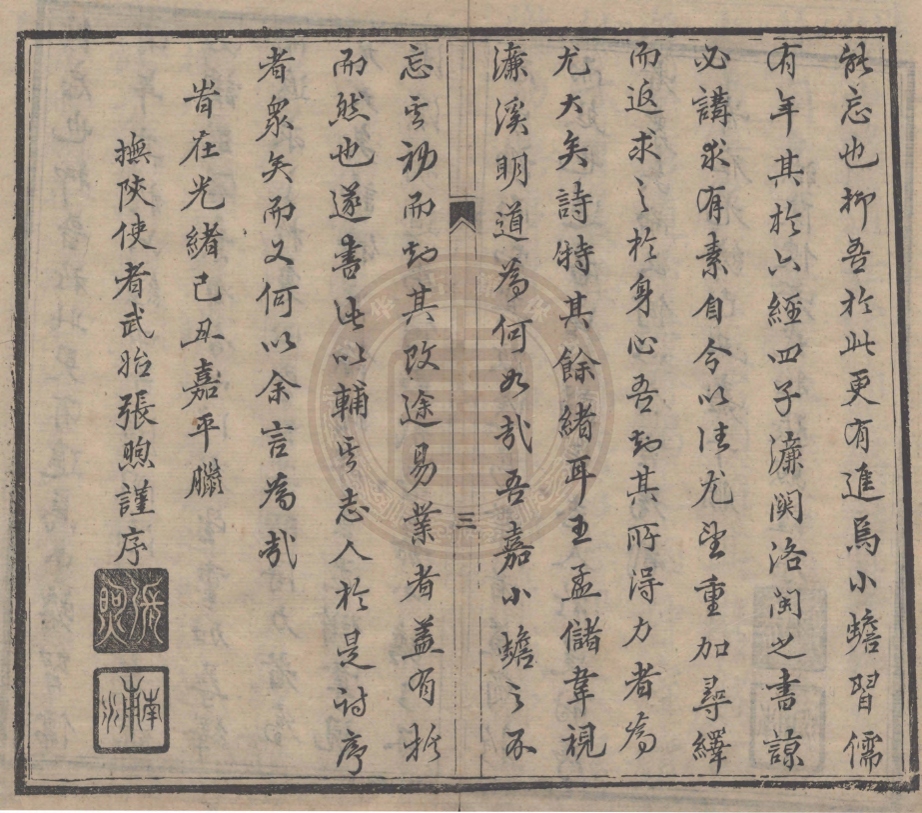 能忘也抑吾於此更有進焉小蟾習儒
有年其於六經四子濂閩洛關之書諒
必講求有素自今以往尤望重加尋繹
而返求之於身心吾知其所得力者為
尤大矣詩特其餘緒耳王孟儲韋視
濂溪明道為何如哉吾嘉小蟾之不
忘其初而知其改途易業者蓋有托
而然也遂書此以輔其志人於是詩序
者眾矣而又何以余言為哉
三
光緒己丑嘉平臘
撫陝使者武治張煦謹序
張煦
南浦